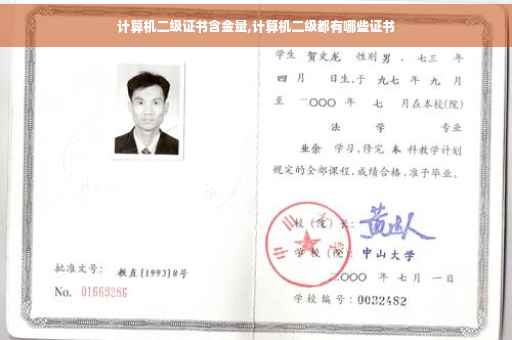 计算机二级证书含金量,计算机二级都有哪些证书
学生 贺文龙 性别 男 、七三 年
四 月 日生,于 九七 年 九 月
至 二〇〇〇 年 七 月在本校(院)
法 学 专业
业余 学习,修完 本 科教学计划
规定的全部课程,成绩合格,准予毕业。
校(院)长:
学校(院): 中山大学
二〇〇〇 年 七 月 一 日
学校编号: 0032482
批准文号: 教直[1993]8号
No. 01669286